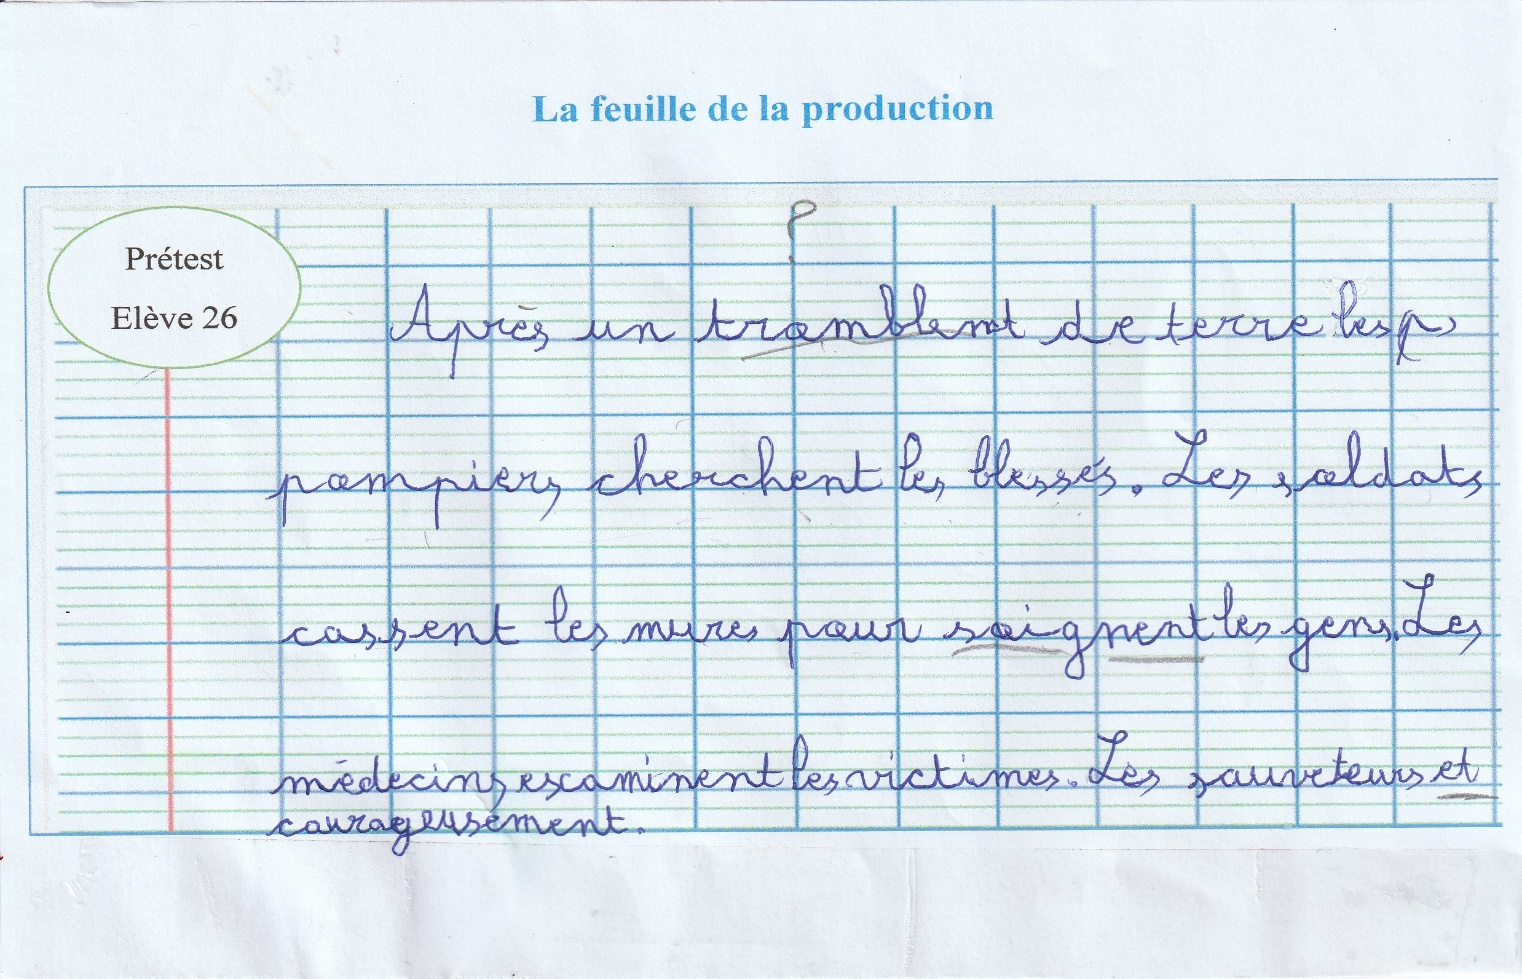 La feuille de la production
Prétest
Elève 26
?
Après un tramblemnt de terre les p
pompiers cherchent les blessés. Les soldats
cassent les mures pour soignent les gens. Les
médecins escaminent les victimes. Les sauveteurs et
courageusement.